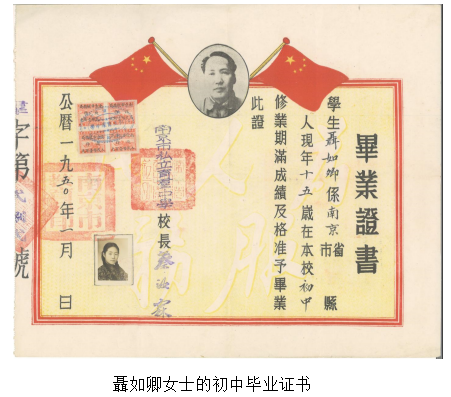 畢業證書
學生聶如卿係南京省市縣
人現年十五歲在本校初中
修業期滿成績及格准予畢業
此證
南京市私立育羣中學校長
公曆一九五〇年一月 日
字第 號
聶如卿女士的初中毕业证书